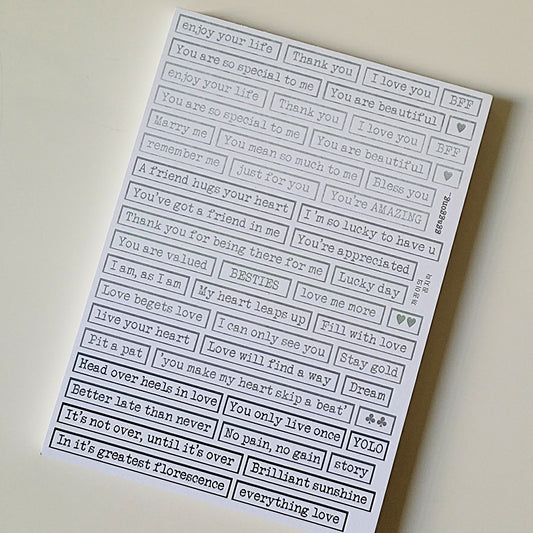 enjoy your life Thank you I love you BFF
You are so special to me You are beautiful ♥
enjoy your life Thank you I love you BFF
You are so special to me You are beautiful ♥
Marry me You mean so much to me Bless you
remember me just for you You're AMAZING
A friend hugs your heart I'm so lucky to have u
You've got a friend in me You're appreciated
Thank you for being there for me Lucky day
You are valued BESTIES love me more ♥♥
I am, as I am My heart leaps up Fill with love
Love begets love I can only see you Stay gold
live your heart Love will find a way Dream
Pit a pat 'you make my heart skip a beat' ♣♣
Head over heels in love You only live once YOLO
Better late than never No pain, no gain story
It's not over, until it's over Brilliant sunshine
In it's greatest florescence everything love
ggaggong_